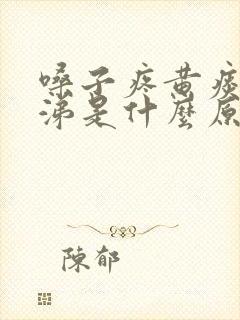 嗓子疼黄痰
涕是什麼原
陳郁